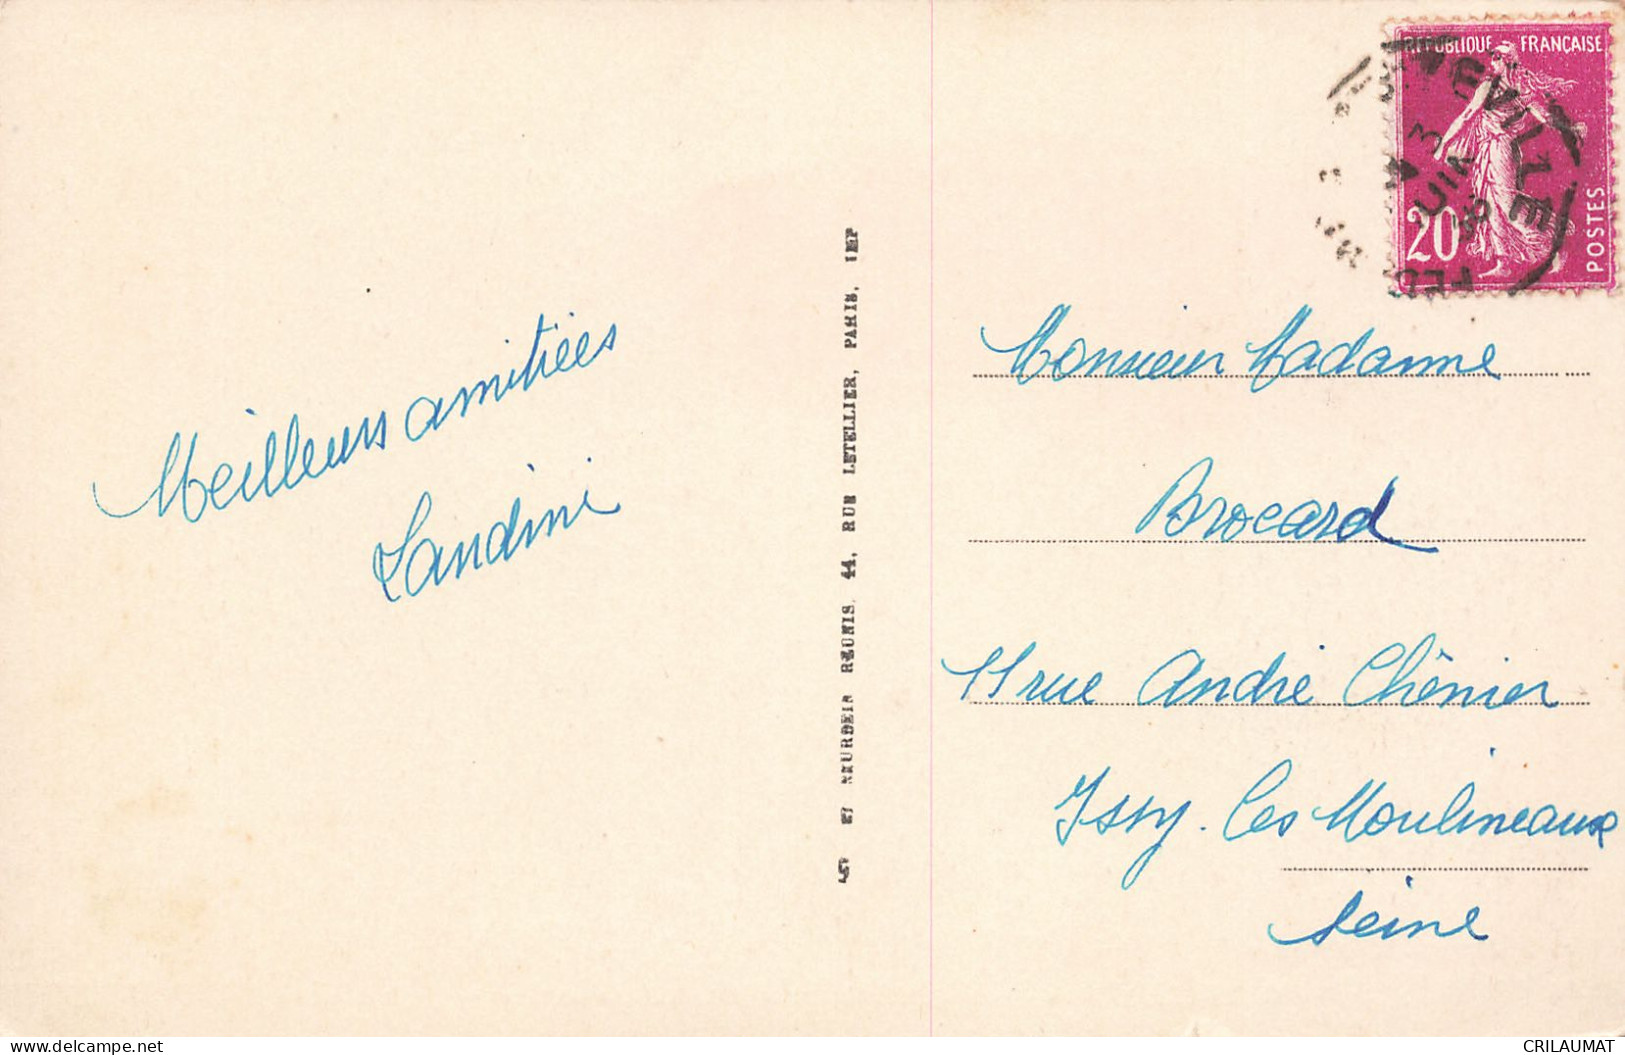 Meilleurs amitiées
Landini
ET NEURDEIN RÉUNIS. 44, RUE LETELLIER, PARIS, IMP
RÉPUBLIQUE FRANÇAISE
20
POSTES
NEVILLE
3
JUIN
Monsieur Madamme
Brocard
11 rue André Chênier
Issy. les Moulineaux
Seine
delcampe.net
CRILAUMAT